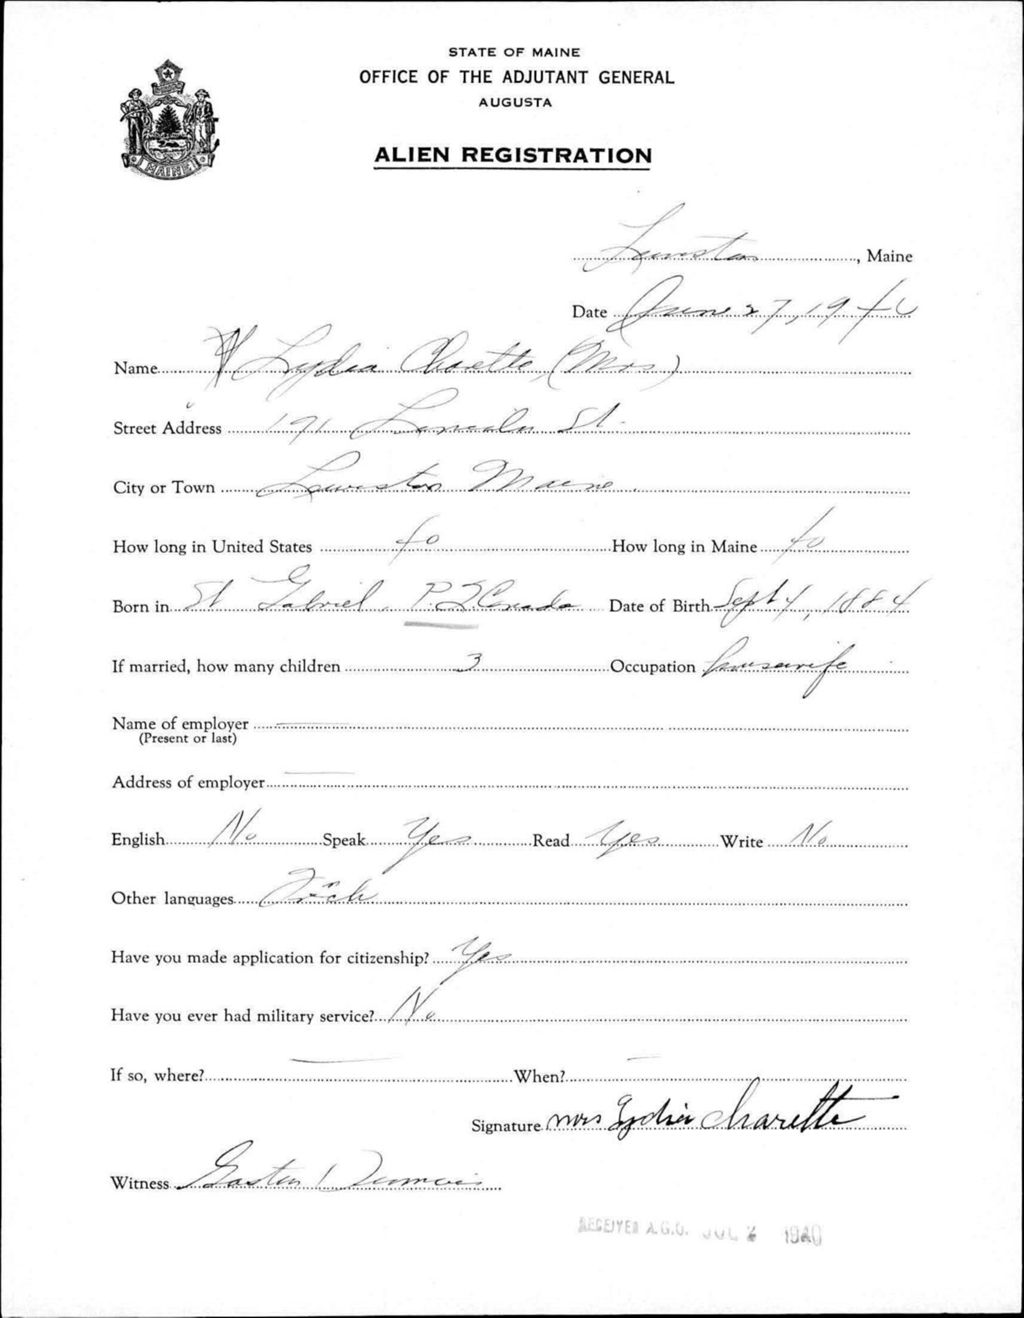 STATE OF MAINE
OFFICE OF THE ADJUTANT GENERAL
AUGUSTA
MAINE
ALIEN REGISTRATION
Lewiston, Maine
Date June 27, 1940
Name Lydia Charette, (Mrs)
Street Address 191 Lincoln St.
City or Town Lewiston Maine.
How long in United States 40 How long in Maine 40
Born in St Gabriel, P.Q Canada Date of Birth Sept 4, 1884
If married, how many children 3 Occupation housewife
Name of employer
(Present or last)
Address of employer
English No Speak Yes Read Yes Write No
Other languages Frnch
Have you made application for citizenship? Yes
Have you ever had military service? No
If so, where? When?
Signature Mrs Lydia Charette
Witness
RECEIVED A.G.O. JUL 2 1940